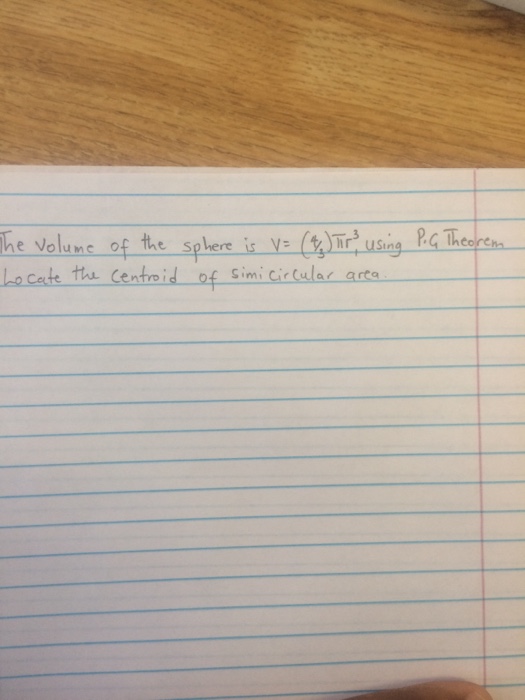 The volume of the sphere is V= (4/3)πr³, using P.G Theorem
Locate the centroid of simicircular area.